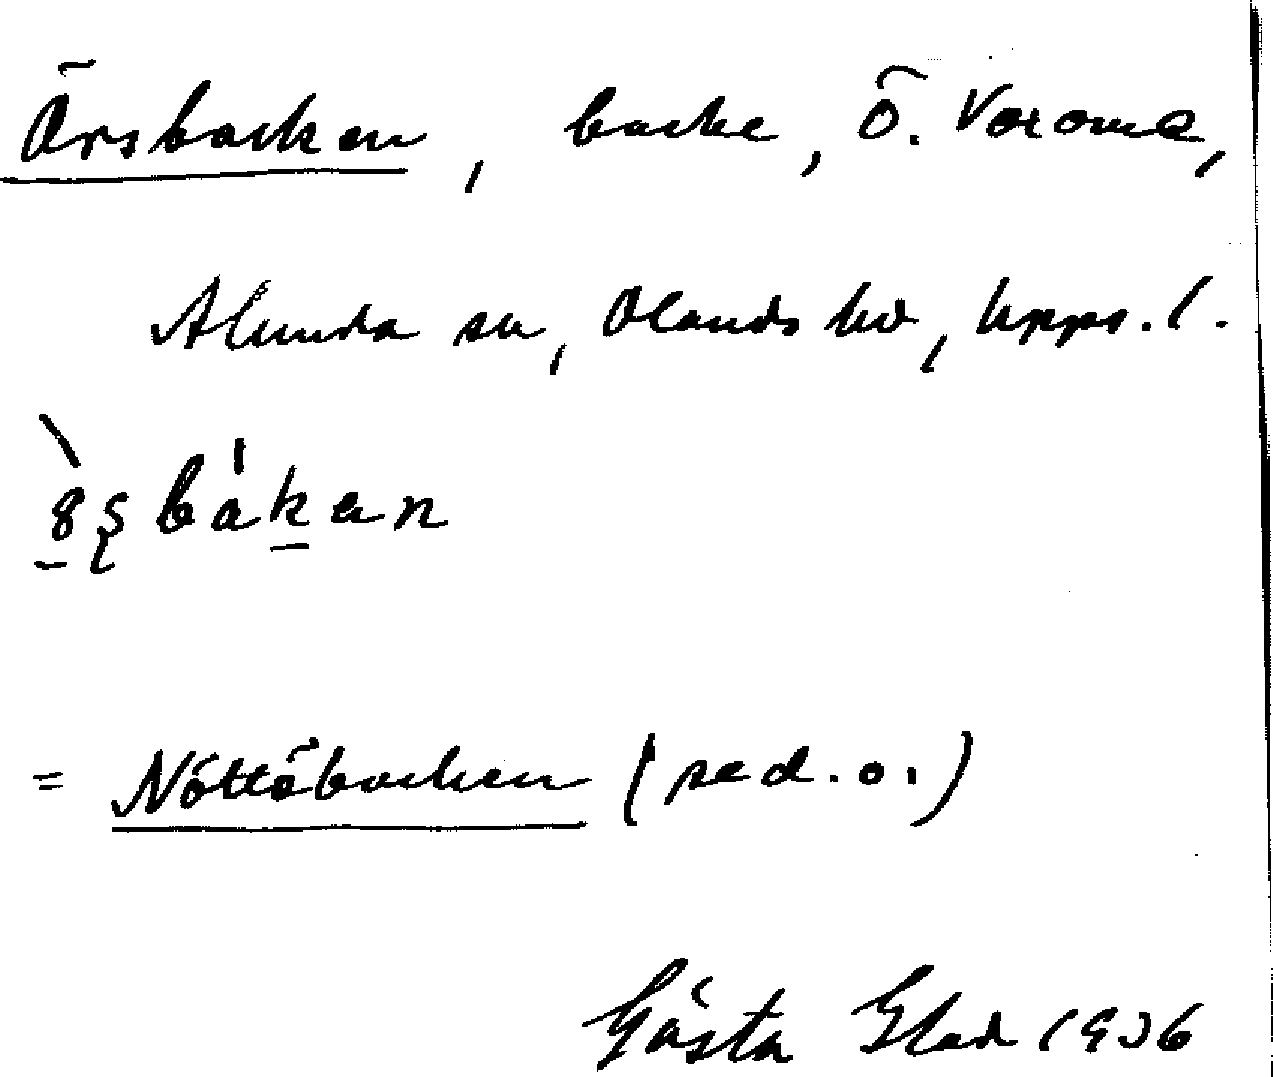 Örsbacken, backe, Ö. Voxome,
Alunda sn, Olands hd, Upps. l.
= Nöttöbacken (se d. o.)
Gösta Elad 1936